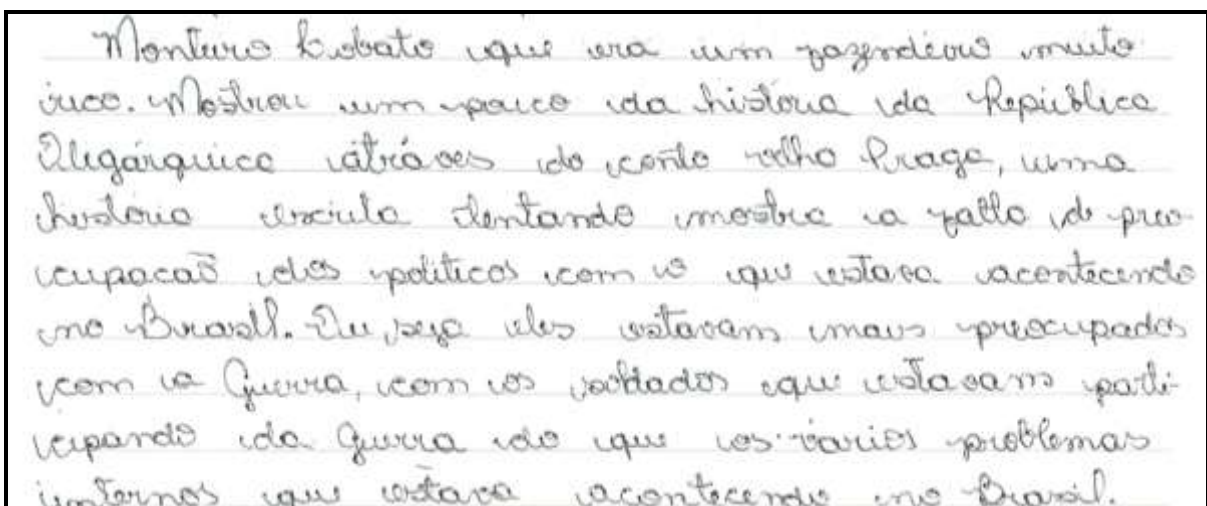 Monteiro Lobato que era um fazendeiro muito
rico. Mostrou um pouco da história da República
Oligárquica atráves do conto velho Praga, uma
historia escrita tentando mostra a falta de preo-
cupacaõ dos politicos com o que estava acontecendo
no Brasil. Ou seja eles estavam mais preocupados
com a Guerra, com os soldados que estavam parti-
cipando da Guerra do que os varios problemas
internos que estava acontecendo no Brasil.